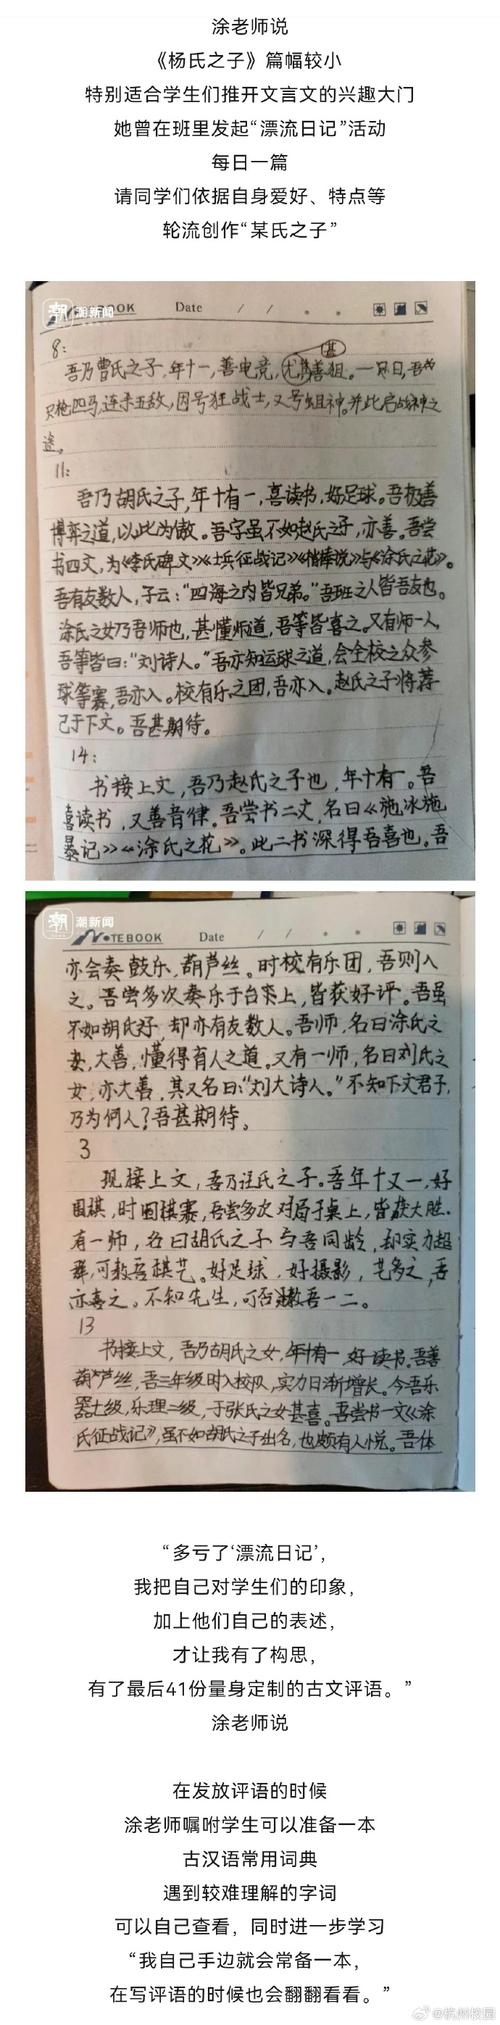 涂老师说
《杨氏之子》篇幅较小
特别适合学生们推开文言文的兴趣大门
她曾在班里发起“漂流日记”活动
每日一篇
请同学们依据自身爱好、特点等
轮流创作“某氏之子”
潮新闻
NOTEBOOK Date / /
8:
吾乃曹氏之子,年十一,善电竞,尤其善狙。一日,吾
只枪四马,连杀五敌,因号狂战士,又号狙神。并此启战神之
途。
11:
吾乃胡氏之子,年十有一,喜读书,好足球。吾极善
博弈之道,以此为傲。吾字虽不如赵氏之子,亦善。吾尝
书四文,为《李氏碑文》《士兵征战记》《说》与《涂氏之花》。
吾有友数人,子云:“四海之内皆兄弟。”吾班之人皆吾友也。
涂氏之女乃吾师也,甚懂师道,吾等皆喜之。又有师一人,
吾等皆曰:“刘诗人。”吾亦知运球之道,会全校之众参
球等赛,吾亦入。校有乐之团,吾亦入。赵氏之子将荐
己于下文。吾甚期待。
14:
书接上文,吾乃赵氏之子也,年十有一。吾
喜读书,又善音律。吾尝书二文,名曰《施冰施
暴记》《涂氏之花》。此二书深得吾喜也。吾
潮新闻
NOTEBOOK Date / /
亦会奏鼓乐,葫芦丝。时校有乐团,吾则入
之。吾尝多次奏乐于台案上,皆获好评。吾虽
不如胡氏好,却亦有友数人。吾师,名曰涂氏之
妻,大善,懂得育人之道。又有一师,名曰刘氏之
女,亦大善,其又名曰:“刘大诗人。”不知下文君子,
乃为何人?吾甚期待。
3
现接上文,吾乃汪氏之子。吾年十又一,好
围棋,时围棋赛,吾尝多次对局于桌上,皆获大胜。
有一师,名曰胡氏之子与吾同龄,却实力超
群,可教吾棋艺。好足球,好摄影,艺多之,吾
亦喜之。不知先生,可否教吾一二。
13
书接上文,吾乃胡氏之女,年十有一,好读书。吾善
葫芦丝,吾三年级时入校队,实力日渐增长。今吾乐
器七级,乐理二级,于张氏之女甚喜。吾尝书一文《涂
氏征战记》,虽不如胡氏之子出名,也颇有人悦。吾体
“多亏了‘漂流日记’,
我把自己对学生们的印象,
加上他们自己的表述,
才让我有了构思,
有了最后41份量身定制的古文评语。”
涂老师说
在发放评语的时候
涂老师嘱咐学生可以准备一本
古汉语常用词典
遇到较难理解的字词
可以自己查看,同时进一步学习
“我自己手边就会常备一本,
在写评语的时候也会翻翻看看。”
@杭州校园